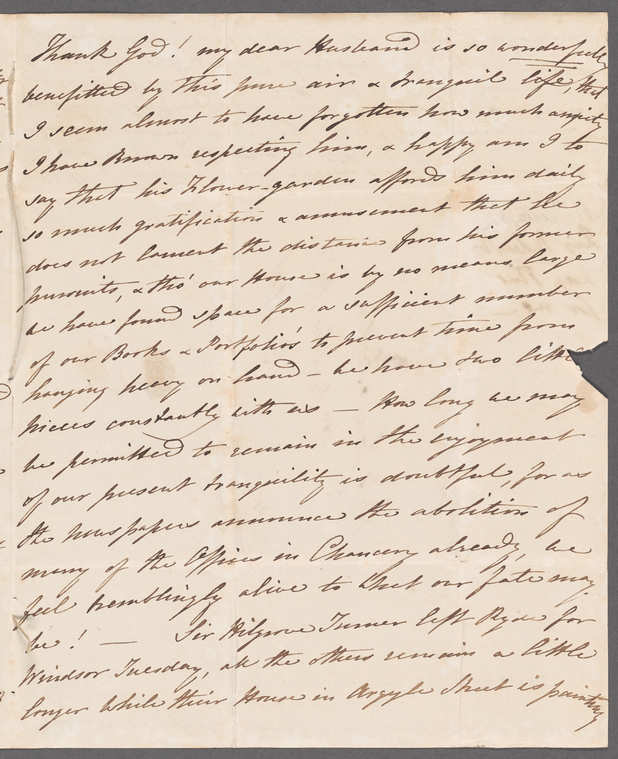 Thank God! my dear Husband is so wonderfully
benefitted by this pure air & tranquil life, that
I seem almost to have forgotten how much anxiety
I have known respecting him, & happy am I to
say that his Flower-garden affords him daily
so much gratification & amusement that he
does not lament the distance from his former
pursuits, & tho' our House is by no means large
we have found space for a sufficient number
of our Books & Portfolio's to prevent time from
hanging heavy on hand – we have two little
nieces constantly with us — How long we may
be permitted to remain in the enjoyment
of our present tranquility is doubtful, for as
the newspapers announce the abolition of
many of the Offices in Chancery already, we
feel tremblingly alive to what our fate may
be! — Sir Hilgrove Turner left Ryde for
Windsor Tuesday, all the others remain a little
longer while their House in Argyle Street is painting